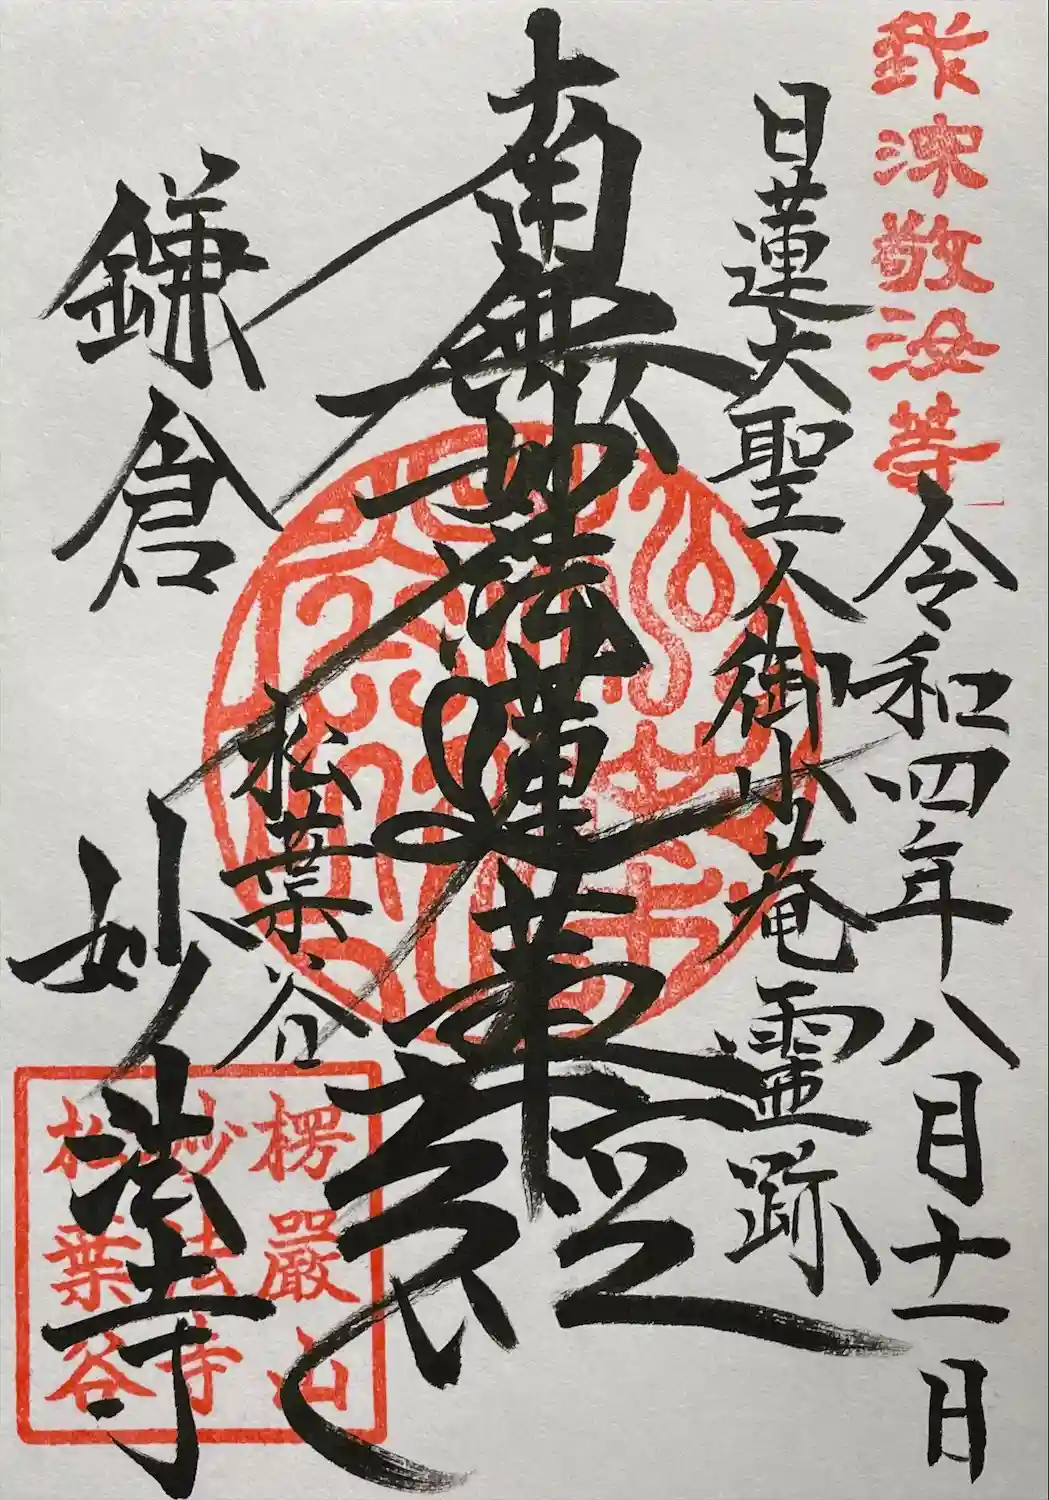 令和四年八月十一日
日蓮大聖人御小菴霊跡
南無妙法蓮華経
鎌倉
松葉谷
妙法寺
楞嚴山
妙法寺
松葉谷